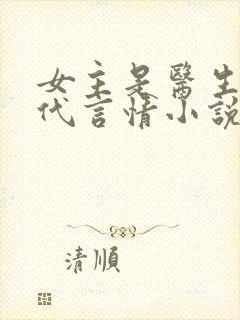 女主是醫生
代言情小說
清順